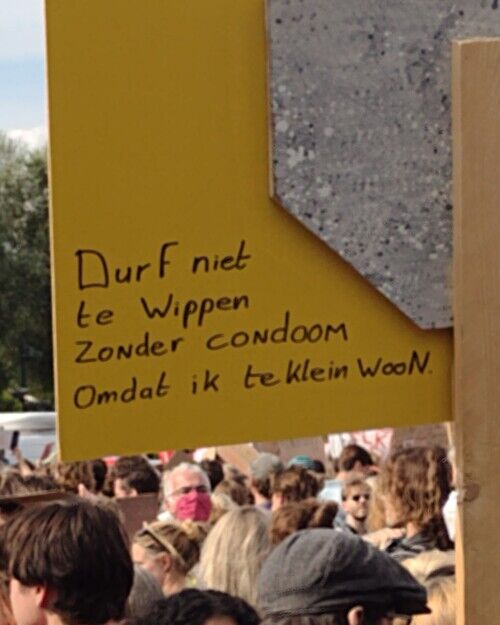 Durf niet
te Wippen
Zonder condoom
Omdat ik te klein Woon.